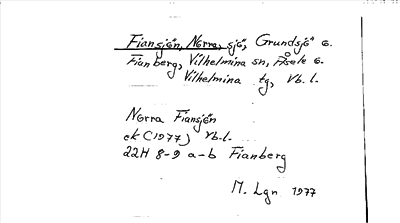 Fiansjön, Norra, sjö, Grundsjö o.
Fianberg, Vilhelmina sn, Åsele o.
Vilhelmina tg, Vb. l.
Norra Fiansjön
ek (1977) Vb. l.
22H 8-9 a-b Fianberg
M. Lgn 1977